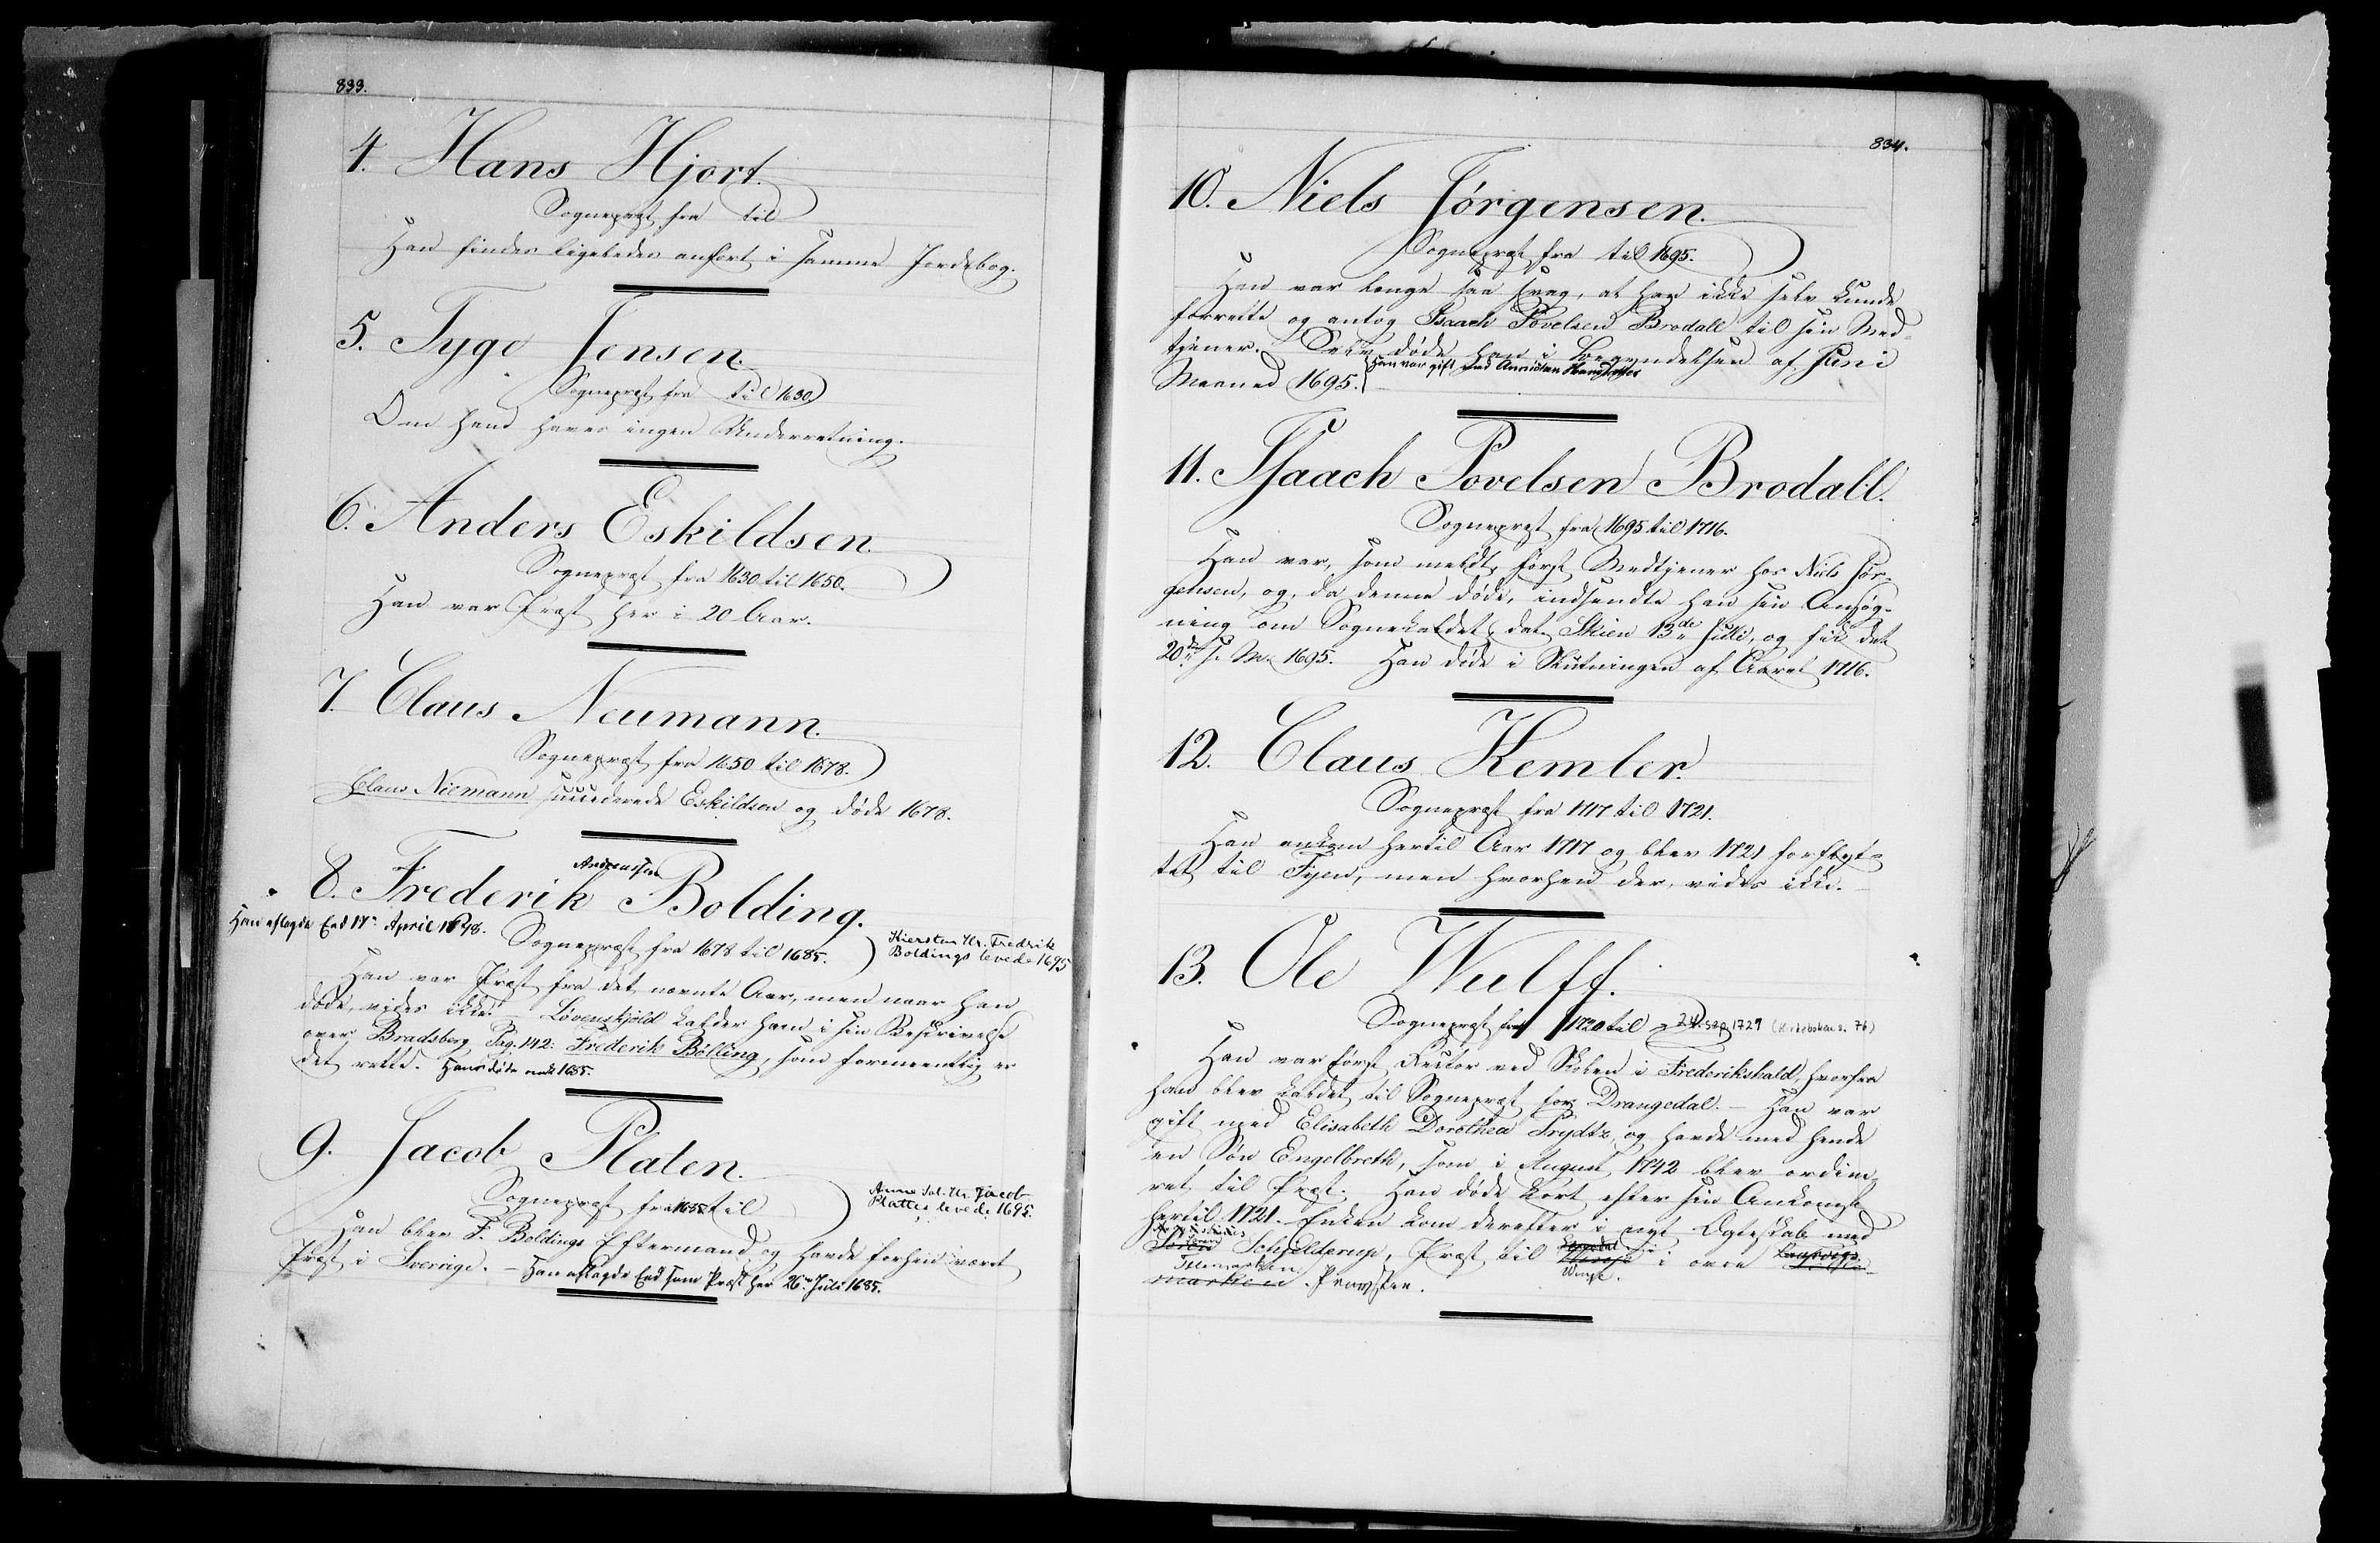 833.
4. Hans Hjort.
Sognepræst fra til
Han findes ligeledes anført i samme Jordebog.
5. Tyge Jensen.
Sognepræst fra til 1630.
Om ham haves ingen Underretning.
6. Anders Eskildsen.
Sognepræst fra 1630 til 1650.
Han var Præst her i 20 Aar.
7. Claus Neumann.
Sognepræst fra 1650 til 1678.
Claus Niemann succederede Eskildsen og døde 1678.
Andreassen
8. Frederik Bolding.
Han aflagde Eed 17de April 1678.
Sognepræst fra 1678 til 1685.
Kiersten Hr. Fredrik
Boldings levede 1695
Han var Præst fra det nævnte Aar, men naar han
døde, vides ikke. – Løvenskjold kalder ham i sin Beskrivelse
over Bradsberg, Pag. 142: Frederik Bölling, som formeentlig er
det rette. Han døde 1685.
9. Jacob Platen.
Sognepræst fra 1685 til
Anna Sal. Hr. Jacob
Plattes levede 1695.
Han blev F. Boldings Eftermand og havde forhen været
Præst i Sverrige. – Han aflagde Eed som Præst her 26de Juli 1685.
834.
10. Niels Jørgensen.
Sognepræst fra til 1695.
Han var længe saa svag, at han ikke selv kunde
forrette og antog Isaach Povelsen Brodall til sin Med-
tjener. Selv døde han i Begyndelsen af Juni
Maaned 1695. Han var gift med
11. Isaach Povelsen Brodall.
Sognepræst fra 1695 til 1716.
Han var, som meldt, først Medtjener hos Niels Jør-
gensen, og, da denne døde, indsendte han sin Ansøg-
ning om Sognekaldet, dat. Skien 13de Juli, og fik det
20de s. M. 1695. Han døde i Slutningen af Aaret 1716.
12. Claus Kemler.
Sognepræst fra 1717 til 1721.
Han ankom hertil Aar 1717 og blev 1721 forflyt-
tet til Fyen, men hvorhen der, vides ikke.
13. Ole Wulff.
Sognepræst fra 1720 til 24. sep 1729 (Kirkeboken s. 76)
Han var først Rector ved Skolen i Frederikshald, hvorfra
han blev kaldet til Sognepræst for Drangedal. – Han var
gift med Elisabeth Dorothea Prydtz, og havde med hende
en Søn Engelbreth, som i August 1742 blev ordine-
ret til Præst. Han døde kort efter sin Ankomst
hertil 1721. Enken kom derefter i nyt Ægteskab med
Søren Schjelderup, Præst til Winje i øvre
Telemarken
marken. Provsten.